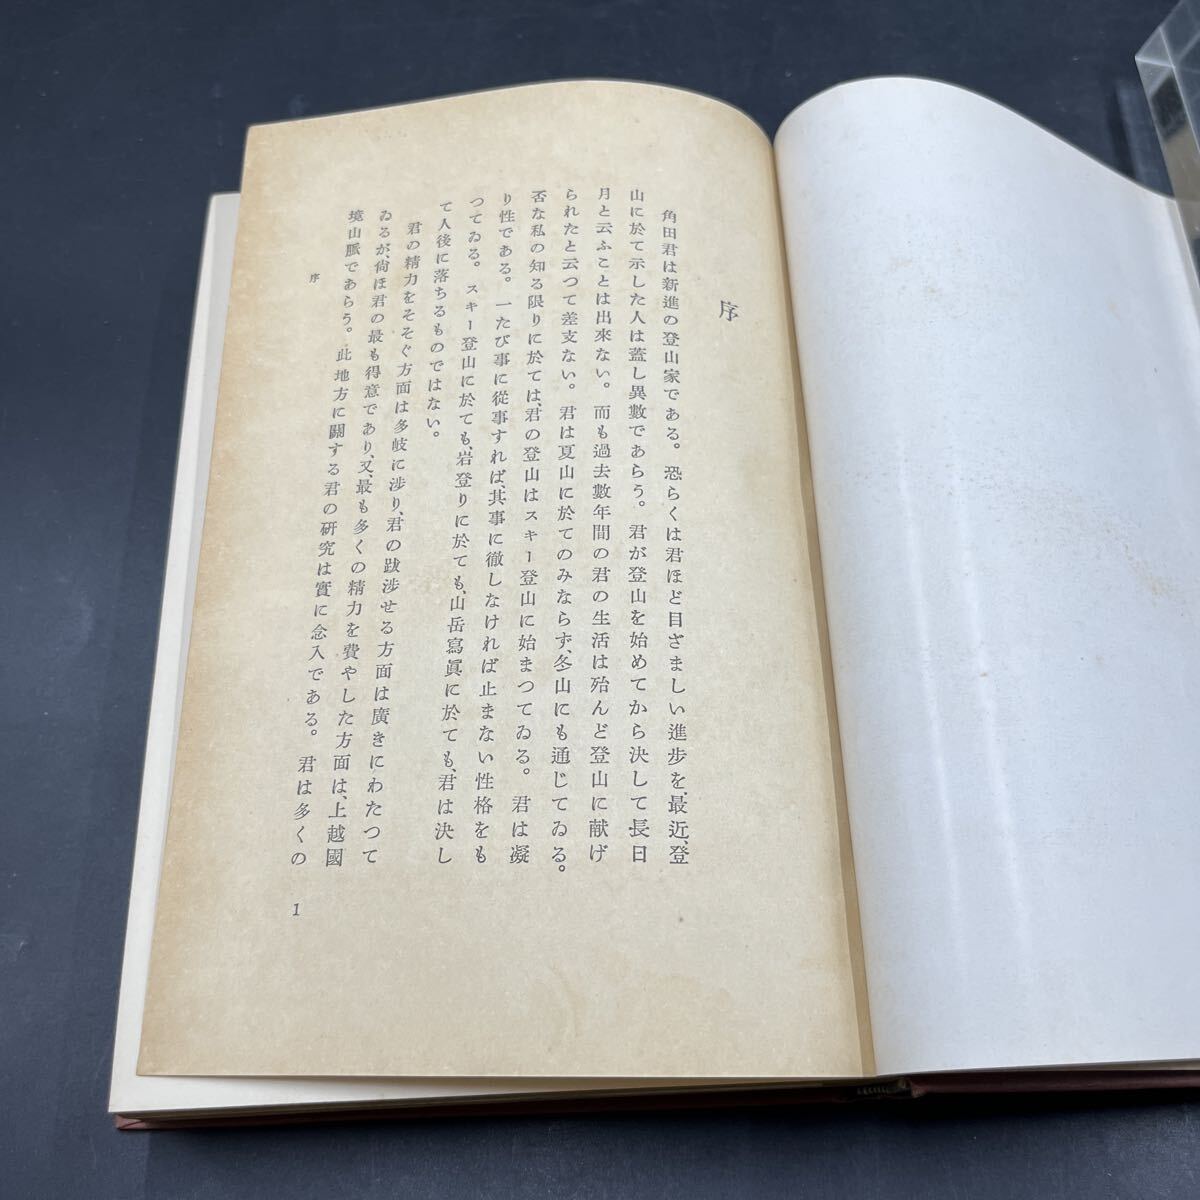 序
角田君は新進の登山家である。恐らくは君ほど目ざましい進步を、最近、登
山に於て示した人は蓋し異數であらう。君が登山を始めてから決して長日
月と云ふことは出來ない。而も過去數年間の君の生活は殆んど登山に献げ
られたと云つて差支ない。君は夏山に於てのみならず、冬山にも通じてゐる。
否な私の知る限りに於ては、君の登山はスキー登山に始まつてゐる。君は凝
り性である。一たび事に從事すれば、其事に徹しなければ止まない性格をも
つてゐる。スキー登山に於ても、岩登りに於ても、山岳寫眞に於ても、君は決し
て人後に落ちるものではない。
君の精力をそそぐ方面は多岐に涉り、君の跋涉せる方面は廣きにわたつて
ゐるが、尙ほ君の最も得意であり、又、最も多くの精力を費やした方面は、上越國
境山脈であらう。此地方に關する君の研究は實に念入である。君は多くの
序
1